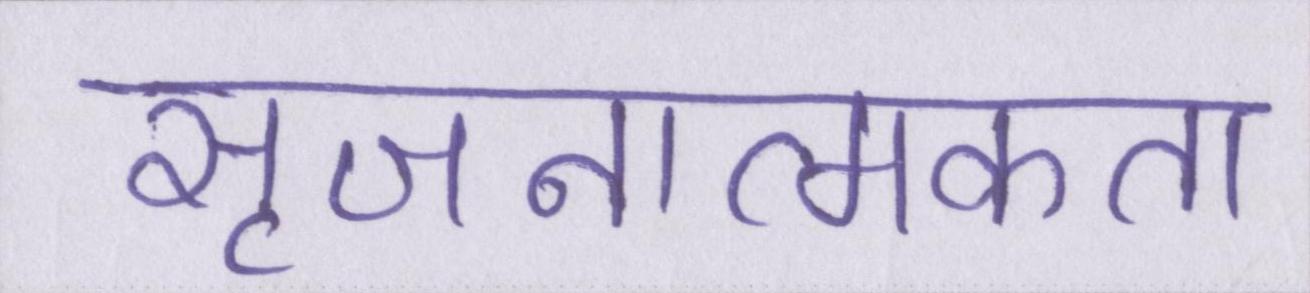 सृजनात्मकता